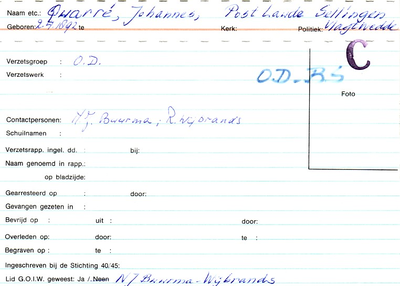 Naam etc.: Quarré, Johannes, Post Lande Sellingen
Geboren: 2-7-1892 te Kerk: Politiek: Vlagtwedde
C
Verzetsgroep : O.D.
Verzetswerk : O.D. - R's
Foto
Contactpersonen: N.J. Buurma; R. Wijbrands
Schuilnamen :
Verzetsrapp. ingel. dd. : bij:
Naam genoemd in rapp.:
op bladzijde:
Gearresteerd op : door:
Gevangen gezeten in :
Bevrijd op : uit : door:
Overleden op: door: te :
Begraven op : te :
Ingeschreven bij de Stichting 40/45:
Lid G.O.I.W. geweest: Ja / Neen NJ Buurma-Wijbrands